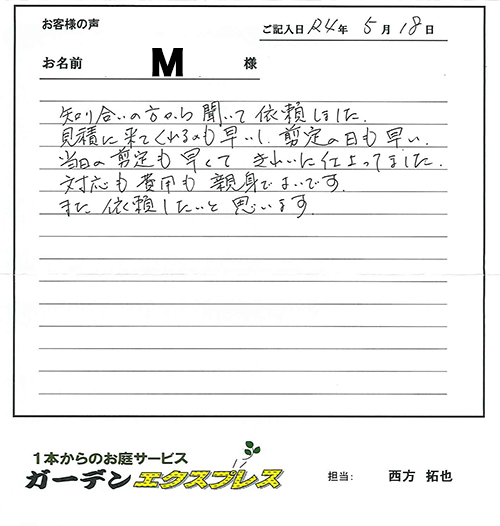 お客様の声
ご記入日 R4年 5月18日
お名前 M 様
知り合いの方から聞いて依頼しました.
見積に来てくれるのも早いし、剪定の日も早い.
当日の剪定も早くてきれいに仕上ってました.
対応も費用も親身でよいです.
また依頼したいと思います.
1本からのお庭サービス
ガーデンエクスプレス
担当: 西方 拓也